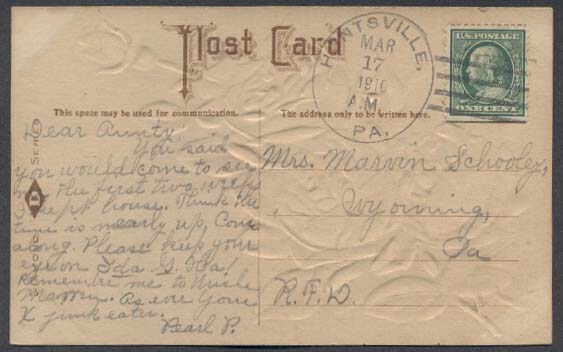 Post Card
HUNTSVILLE,
MAR
17
1910
A.M.
PA.
U.S. POSTAGE
ONE CENT
This space may be used for communication.
The address only to be written here.
Dear Aunty
You said
you would come to see
the first two weeks
kept house. Think the
time is nearly up, Come
along. Please keep your
eye on Ida G. Ha!
Remember me to Uncle
As ever Your
X junk eater.
Pearl P.
Mrs. Marvin Schooley,
Wyoming,
Pa
R.F.D.
D
SERIES